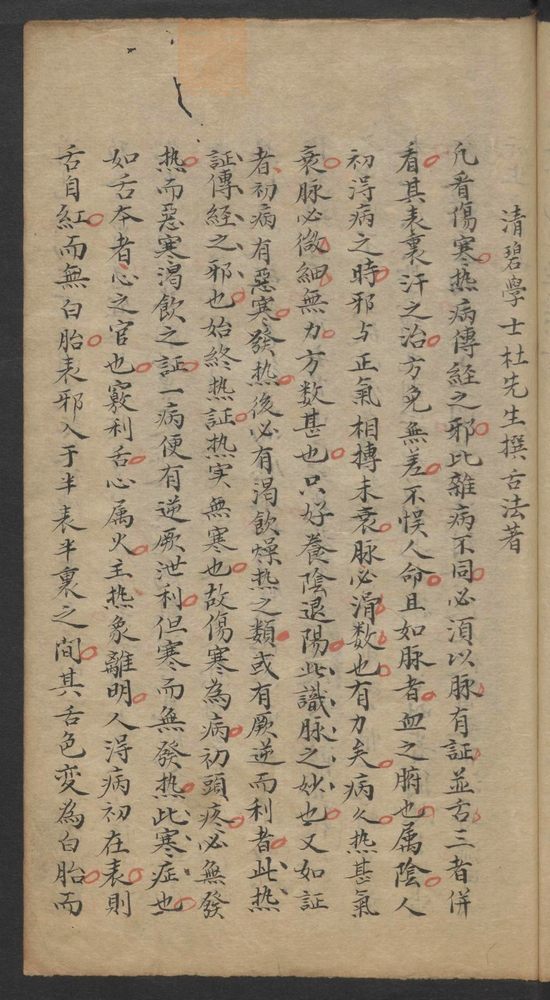 清碧學士杜先生撰舌法著
凡看傷寒热病傳經之邪此雜病不同必須以脉有証並舌三者併
看其表裏汗之治方免無差不悞人命且如脉者血之腑也属陰人
初淂病之時邪与正氣相摶未衰脉必滑数也有力矣病久热甚氣
衰脉必微細無力方数甚也只好養陰退陽此識脉之妙也又如証
者初病有惡寒發热後必有渴飲燥热之類或有厥逆而利者此热
証傳經之邪也始終热証热实無寒也故傷寒為病初頭疼必無發
热而惡寒渴飲之証一病便有逆厥泄利但寒而無發热此寒症也
如舌本者心之官也竅利舌心属火主热象離明人淂病初在表則
舌自紅而無白胎表邪入于半表半裏之间其舌色变為白胎而